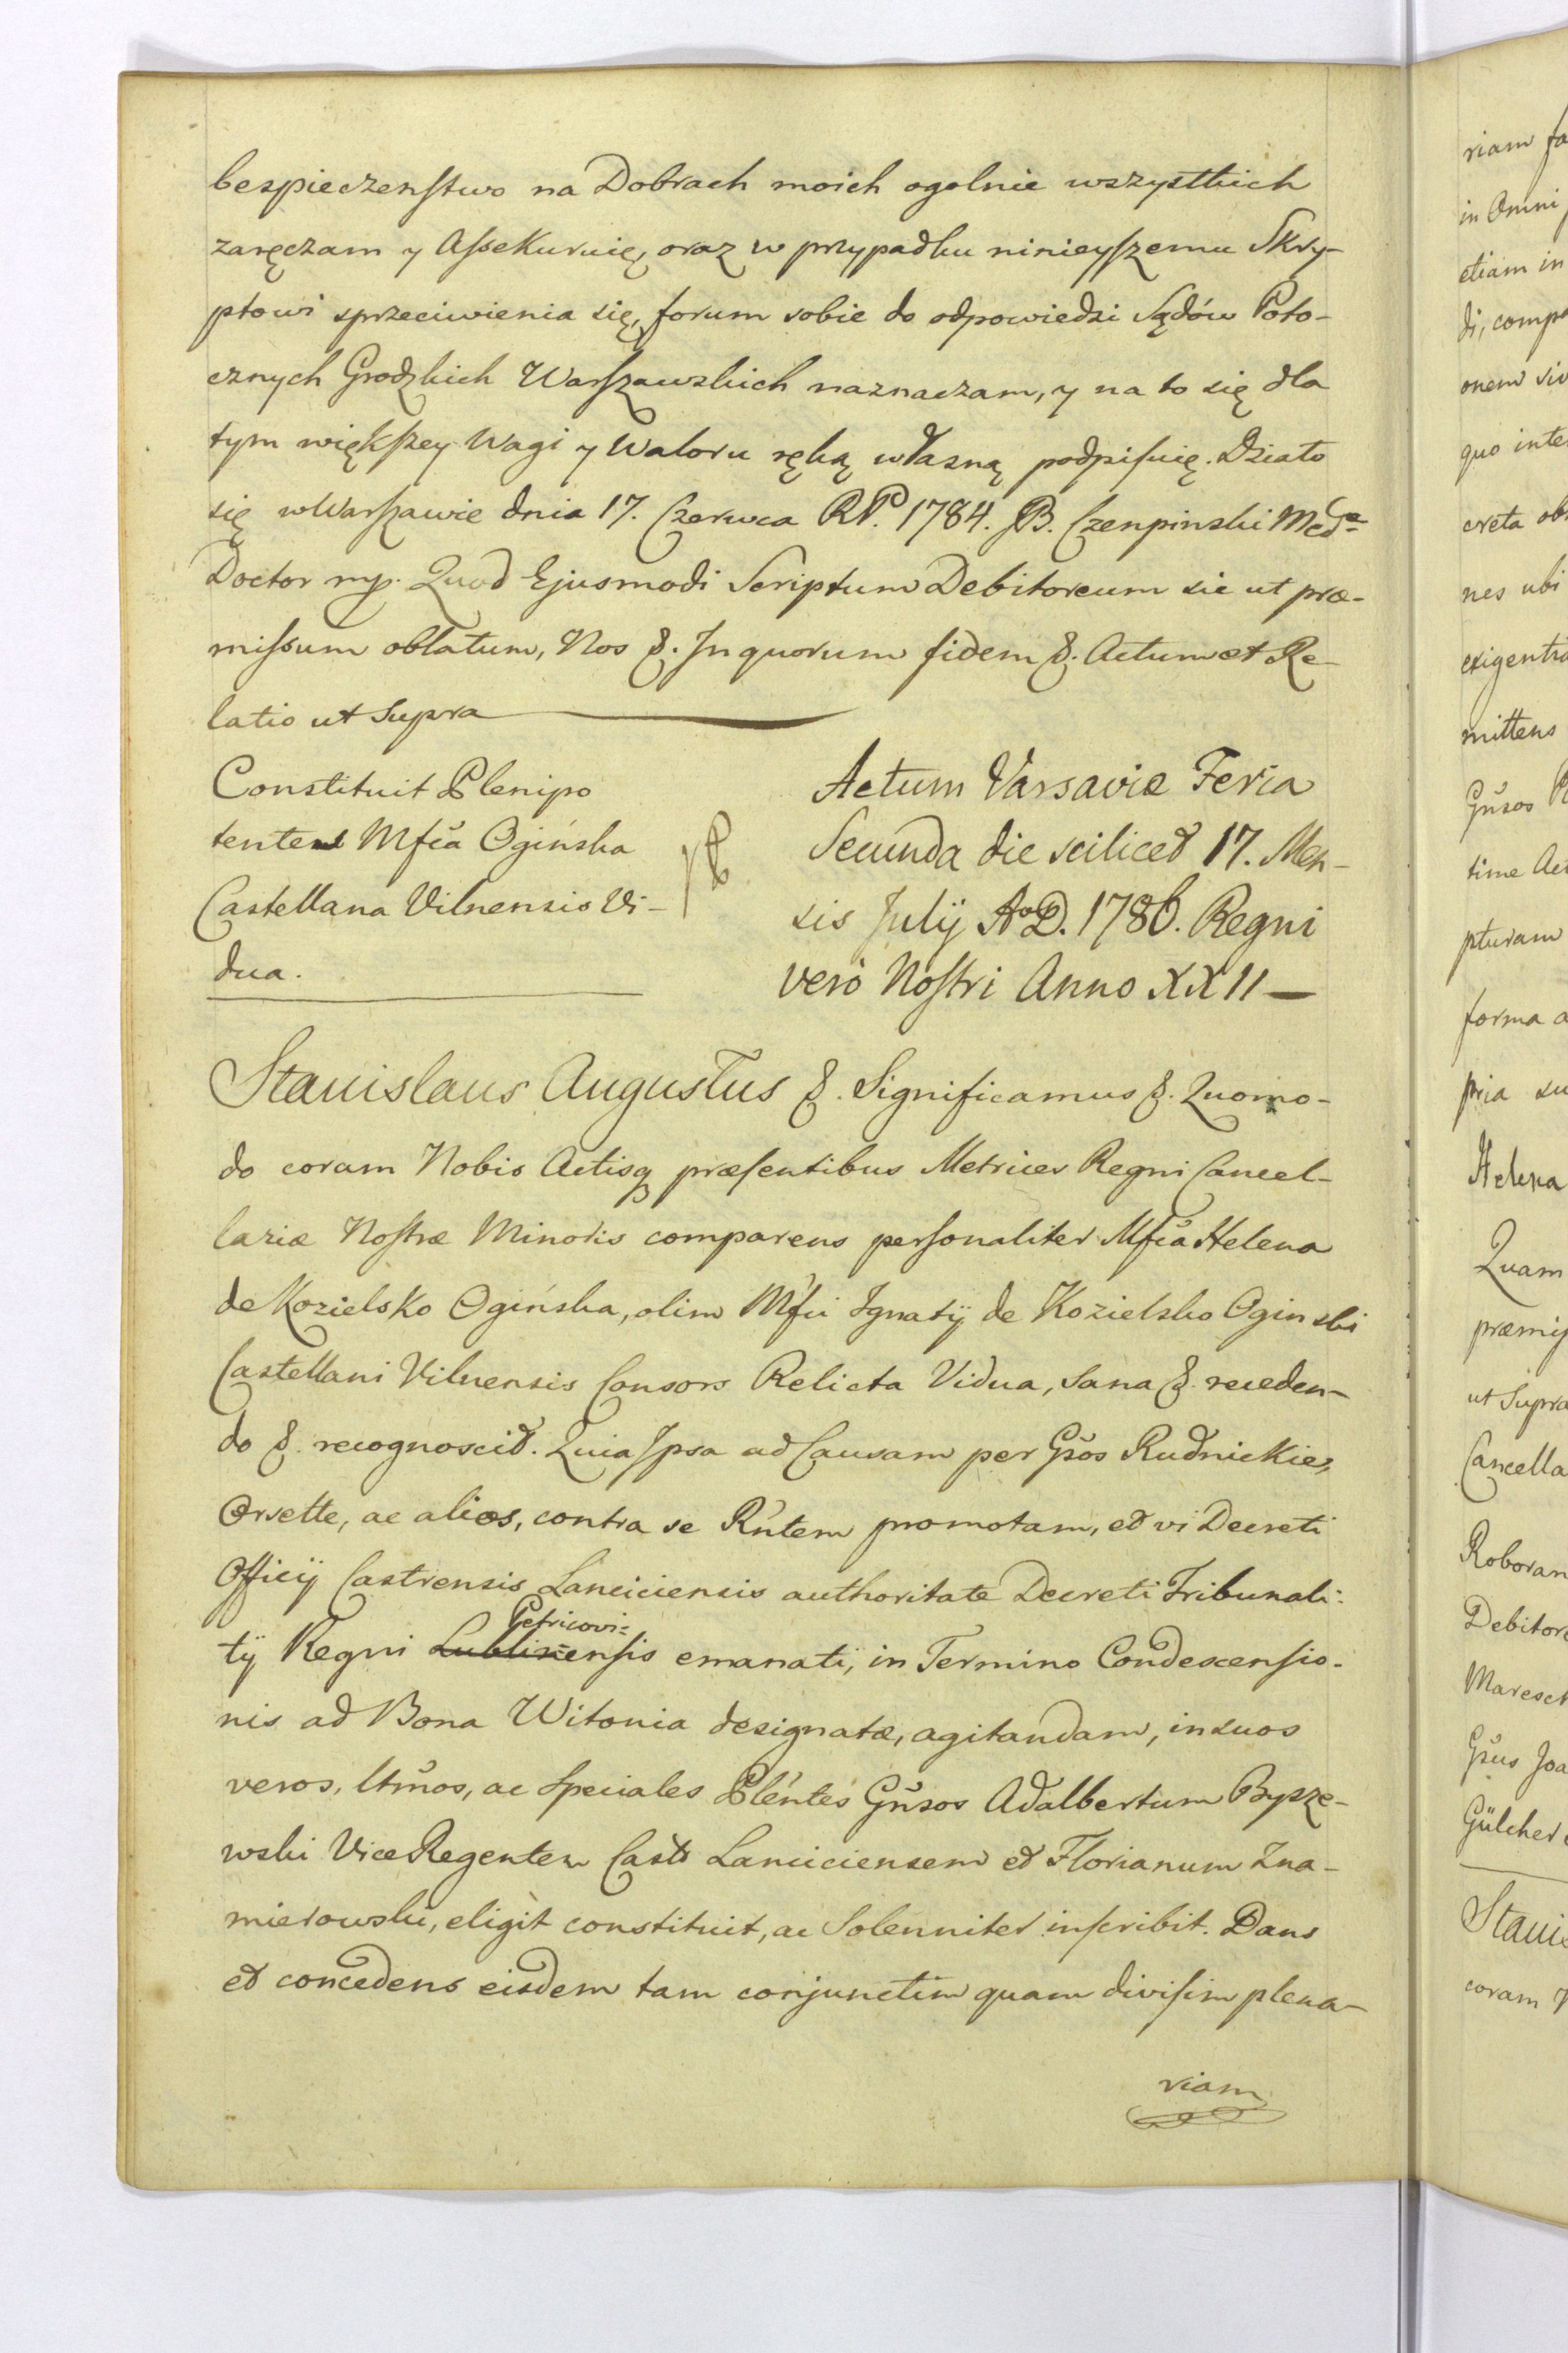 bespieczenſtwo na Dobrach moich ogolnie wszystkich
zaręczam y Aſsekuruię, oraz w przypadku ninieyſzemu Skry-
ptowi sprzeciwienia się, forum sobie do odpowiedzi Sądów Poto-
cznych Grodzkich Warſzawskich naznaczam, y na to się dla
tym więkſzey Wagi y Waloru ręką własną podpiſuię. Działo
się w Warſzawie dnia 17. Czerwca RP. 1784. JB. Czenpinski Med:
Doctor mp. Quod Ejusmodi Scriptum Debitoreum sic ut præ-
miſsum oblatum, Nos &. In quorum fidem &. Actum et Re-
latio ut Supra
Constituit Plenipo
tentem Mfca Ogińska
Castellana Vilnensis Vi-
dua.
Actum Varsaviæ Feria
Secunda die scilicet 17. Men-
sis Julÿ AoD. 1786. Regni
verò Noſtri Anno XXII
Stanislaus Augustus &. Significamus &. Quomo-
do coram Nobis Actisq præſentibus Metrices Regni Cancel-
lariæ Noſtræ Minoris comparens perſonaliter Mfca Helena
de Kozielsko Ogińska, olim Mfci Ignatÿ de Kozielsko Oginski
Castellani Vilnensis Consors Relicta Vidua, Sana &. receden-
do &. recognoscit. Quia Ipsa ad Causam per Gsos Rudnickie,
Orsette, ac alios, contra se Rntem promotam, et vi Decreti
Officÿ Castrensis Lanciciensis authoritate Decreti Tribunali-
tÿ Regni Lublinensis Petricovi= emanati, in Termino Condescenſio-
nis ad Bona Witonia designatæ, agitandam, in suos
veros, ltmos, ac Speciales Plentes Gnsos Adalbertum Bysze-
wski Vice Regentem Casts Lanciciensem et Florianum Zna-
mierowski, eligit constituit, ac Solenniter inſcribit. Dans
et concedens eisdem tam conjunctim quam diviſim plena-
riam
riam fa
in Omni
etiam in
di, comp
onem siv
quo inte
creta ob
nes ubi
exigentia
mittens
Gnsos
time Act
pturam
forma a
pria su
Helena
Quam
præmiſ
ut Supra
Cancella
Roboran
Debitore
Maresch
Gsus Joa
Gülcher
Stanis
coram